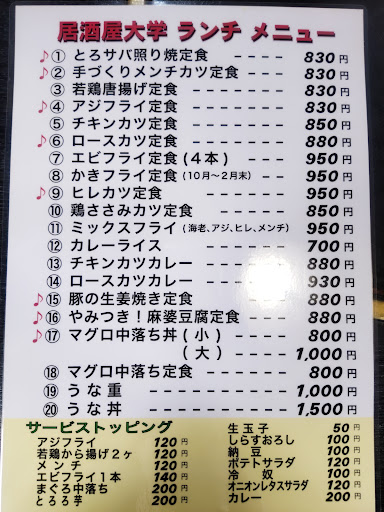 居酒屋大学 ランチ メニュー
♪① とろサバ照り焼定食 ---- 830円
♪② 手づくりメンチカツ定食 ---- 830円
③ 若鶏唐揚げ定食 ---- 830円
♪④ アジフライ定食 ---- 830円
⑤ チキンカツ定食 ---- 850円
♪⑥ ロースカツ定食 ------- 880円
⑦ エビフライ定食(4本) --- 950円
⑧ かきフライ定食(10月〜2月末) --- 950円
♪⑨ ヒレカツ定食 ------- 950円
⑩ 鶏ささみカツ定食 ---- 850円
⑪ ミックスフライ(海老、アジ、ヒレ、メンチ) 950円
⑫ カレーライス ------ 700円
⑬ チキンカツカレー ---- 880円
⑭ ロースカツカレー ---- 930円
♪⑮ 豚の生姜焼き定食 --- 880円
♪⑯ やみつき!麻婆豆腐定食 --- 880円
♪⑰ マグロ中落ち丼(小) --- 800円
(大) --- 1,000円
⑱ マグロ中落ち定食 ---- 800円
⑲ うな重 -------- 1,000円
⑳ うな丼 -------- 1,500円
サービストッピング
アジフライ 120円
若鶏から揚げ2ヶ 120円
メンチ 120円
エビフライ1本 140円
まぐろ中落ち 200円
とろろ芋 200円
生玉子 50円
しらすおろし 100円
納豆 100円
ポテトサラダ 120円
冷奴 100円
オニオンレタスサラダ 120円
カレー 200円